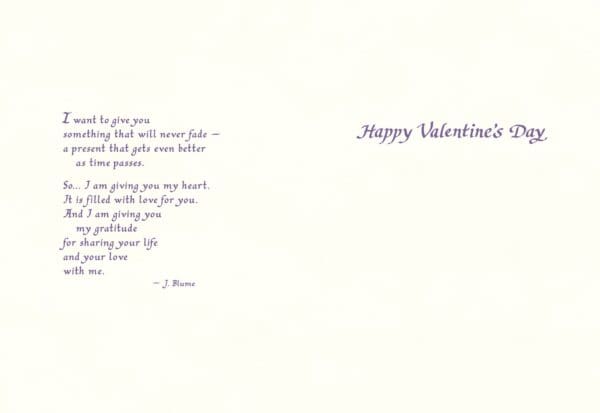 I want to give you
something that will never fade —
a present that gets even better
as time passes.
So... I am giving you my heart.
It is filled with love for you.
And I am giving you
my gratitude
for sharing your life
and your love
with me.
— J. Blume
Happy Valentine's Day